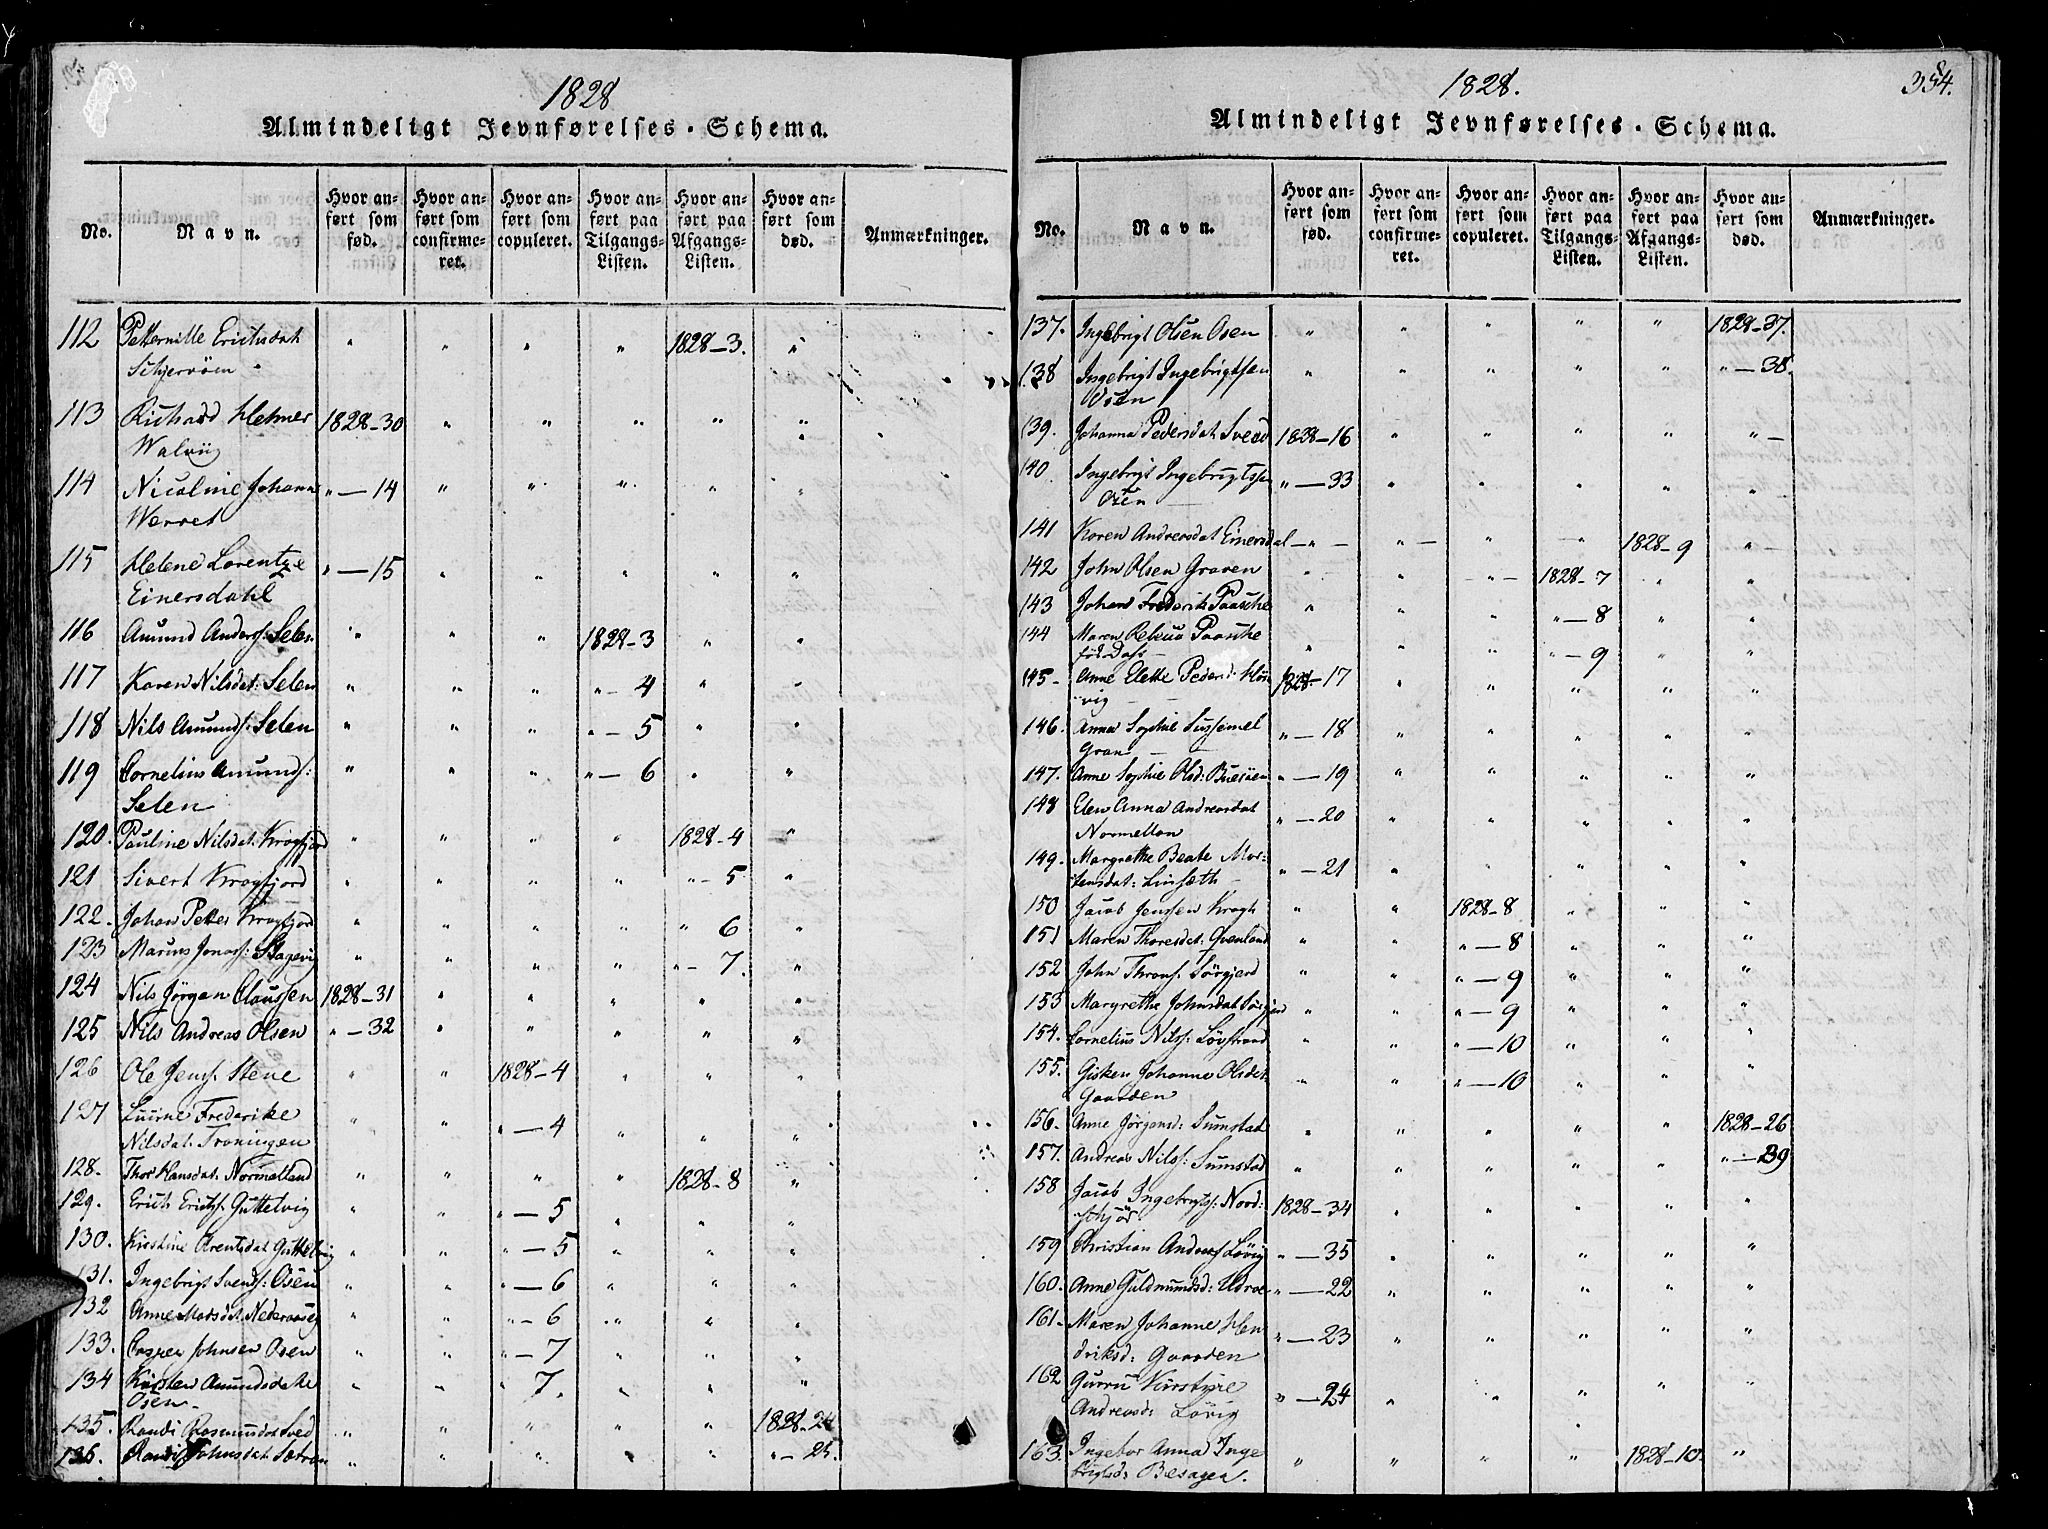 1828
Almindeligt Jevnførelses-Schema.
No. Navn. Hvor anført som fød. Hvor anført som confirmeret. Hvor anført som copuleret. Hvor anført paa Tilgangs-Listen. Hvor anført paa Afgangs-Listen. Hvor anført som død. Anmærkninger.
112 Petternille Erichsdat " " " " 1828-3. "
113 Richard Helmer 1828-30 " " " " "
114 Nicoline Johanne " — 14 " " " " "
Werret
115 Helene Lorentze " — 15 " " " " "
Einersdahl
116 Amund Anders: Selen " " " 1828-3 " "
117 Karen Nilsdat: Selen " " " " - 4 " "
118 Nils Amunds: Selen " " " " - 5 " "
119 Cornelius Amunds: " " " " - 6 " "
Selen
120. Pauline Nilsdat: Krogfjord " " " " 1828-4 "
121 Sivert Krogfjord " " " " " - 5 "
122. Johan Petter Krogfjord " " " " " 6 "
123 Marius Jonas: " " " " " - 7. "
124 Nils Jörgen Claussen 1828-31 " " " " "
125 Nils Andreas Olsen " - 32 " " " " "
126 Ole Jens: Stene " " 1828-4 " " "
127 Frederike " " " - 4 " " "
Nilsdat:
128. Hansdat: Normelland " " " " 1828-8 "
129. Erich Erichs: Guttelvig " " " - 5 " " "
130. Kirstine Arentsdat Guttelvig " " " - 5 " " "
131. Ingebrigt Svends: Osen " " " - 6 " " "
132 Anne " " " - 6 " " "
133. Casper Johnsen Osen " " " - 7 " " "
134 Kirsten Amundsdatte " " " 7. " " "
Osen
135. Randi Rasmusdat " " " " " 1828-24
136. Johnsdat " " " " " " - 25.
1828.
354.
Almindeligt Jevnførelses-Schema.
No. Navn. Hvor anført som fød. Hvor anført som confirmeret. Hvor anført som copuleret. Hvor anført paa Tilgangs-Listen. Hvor anført paa Afgangs-Listen. Hvor anført som død. Anmærkninger.
137. Ingebrigt Olsen Osen " " " " " 1828-37.
138 Ingebrigt Ingebrigtsen " " " " " " - 38.
Osen
139. Johanna Pedersdat 1828-16 " " " " "
140 Ingebrigt Ingebrigtssen " - 33 " " " " "
Osen
141 Karen Andreasdat Einersdal " " " " 1828-9 "
142 John Olsen Graven " " " 1828-7 " "
143 Johan Frederik Paasche " " " " - 8 " "
144 Maren Paasche " " " " - 9 " "
født Dass
145- Anne Elette Pedersd: 1828-17 " " " " "
vig
146. Anna Sophie " - 18 " " " " "
Gran
147. Anne Sophie Olsd: " - 19 " " " " "
148 Elen Anna Andreasdat " - 20 " " " " "
149. Margrethe Beate Mor- " - 21 " " " " "
tensdat: Linsæth
150 Jacob Jenssen Krogh " " 1828-8 " " "
151 Maren Thoresdat: Qvenland " " " - 8 " " "
152 John Throns: " " " - 9 " " "
153 Margrethe Johnsdat " " " - 9 " " "
154. Cornelius Nils: " " " - 10 " " "
155. Gisken Johanne Olsdat: " " " - 10 " " "
Gaarden
156. Anne Jörgensd: Sumstad " " " " " 1828-26
157. Andreas Nils: Sumstad " " " " " " - 39
158 Jacob Ingebrigts: Nord- 1828-34 " " " " "
159 Christian Andreas " - 35 " " " " "
160. Anne Guldmundsd: " - 22 " " " " "
161. Maren Johanne Hen " - 23 " " " " "
driksd: Gaarden
162 " - 24 " " " " "
Andreasd:
163. Ingebor Anna Inge " " " " 1828-10. "
brigtsd: Besagen.